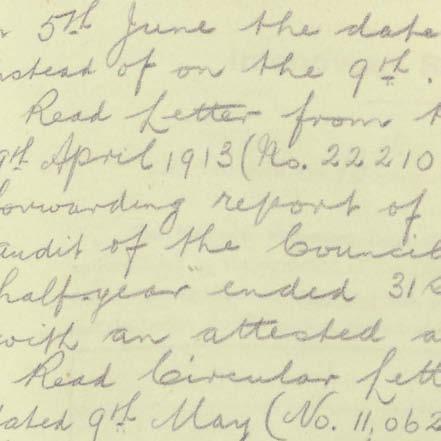 5th June the date
instead of on the 9th.
Read Letter from
9th April 1913 (No. 22210
forwarding report of
audit of the Council
half-year ended 31s
with an attested a
Read Circular Lett
dated 9th May (No. 11,062